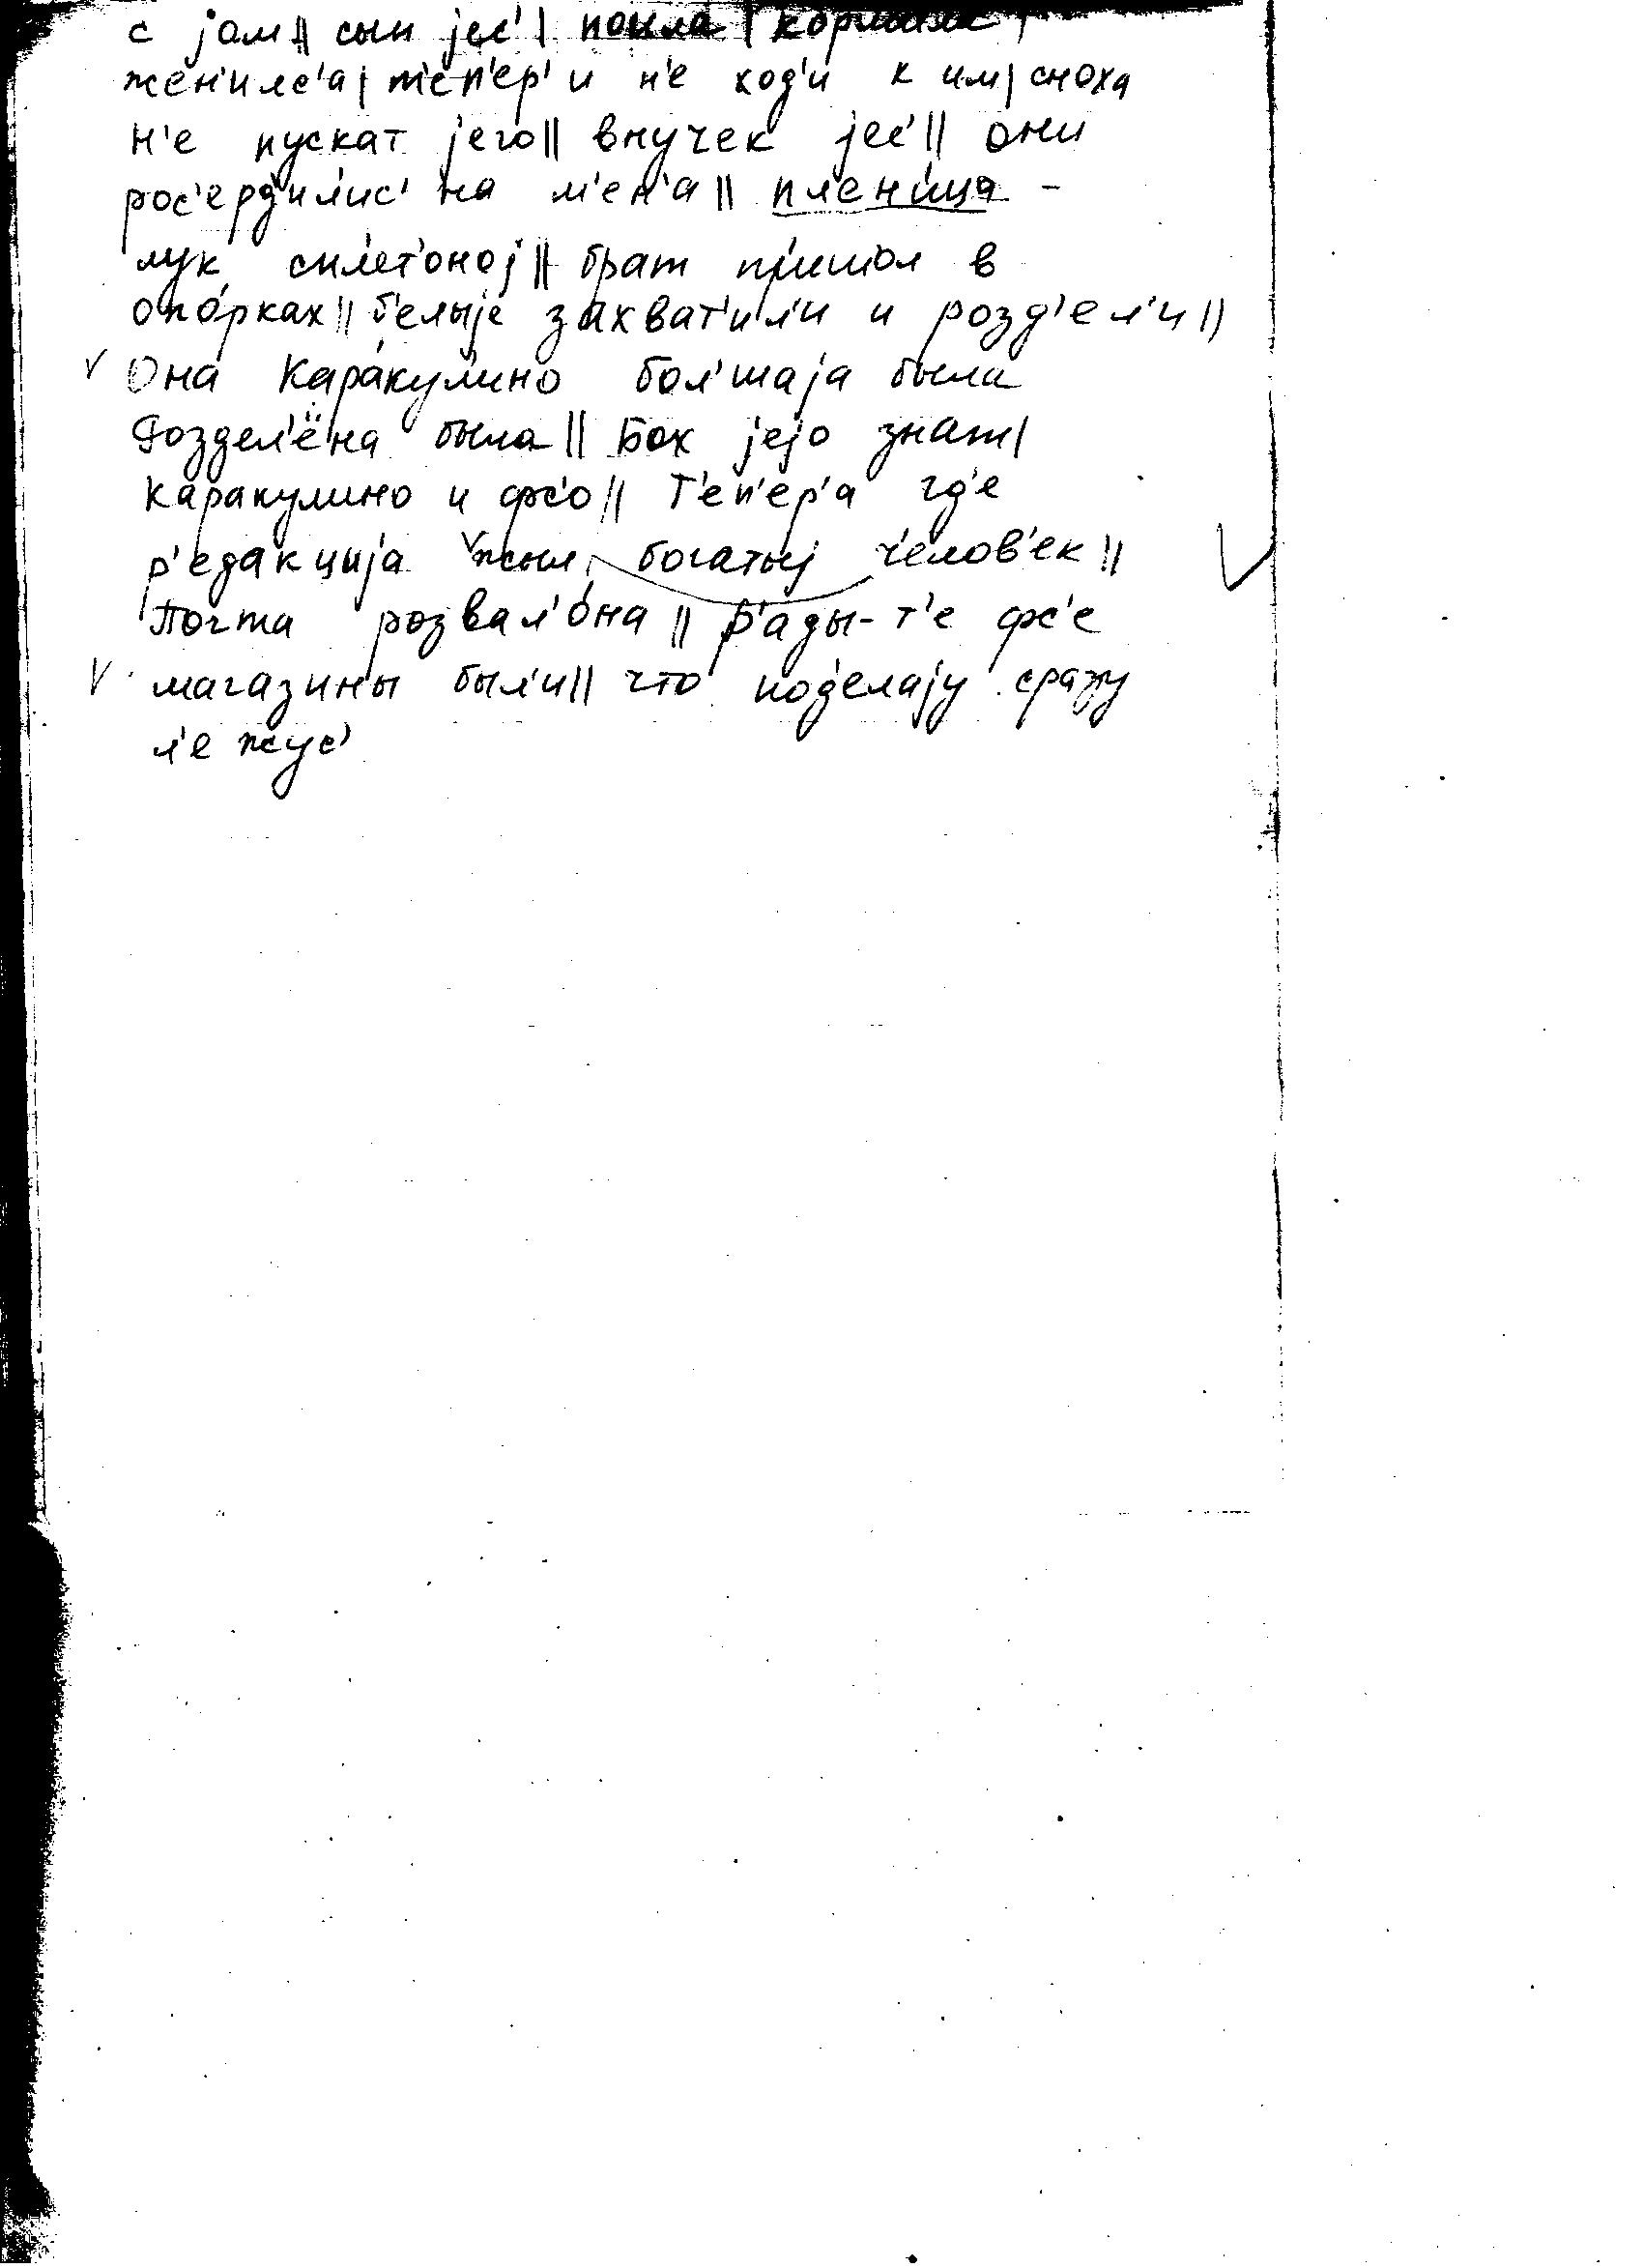 с јам|| сын јес'| поила | кормила |
жен'илс'а| т'еп'ер' и н'е ход'и к им| сноха
н'е пускат јего|| внучек јес'|| они
рос'ерд'ил'ис' на м'ен'а || пл'ен'ица -
лук спл'ет'оној || брат пришол в
опо́рках || б'елыје захват'ил'и и розд'ел'и ||
Она́ Кара́кул'ино бол'шаја была
Розделʼёна была || Бох јејо знат|
Каракулино и фс'о || Т'еп'ер'а гд'е
р'едакција жыл богатыј ч'елов'ек ||
Почта розвал'о́на || р'ады-т'е фс'е
магазины был'и || что под'елају сразу
л'ежус'